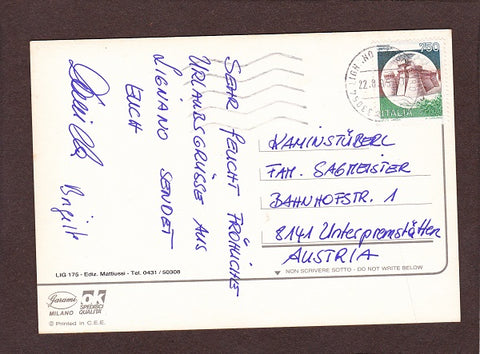 SEHR FEUCHT FRÖHLICHE
URLAUBSGRÜSSE AUS
LIGNANO SENDET
EUCH
Brigitte
750
ITALIA
22.8
33054
KAMINSTÜBERL
FAM. SAGMEISTER
BAHNHOFSTR. 1
8141 Unterpremstätten
AUSTRIA
NON SCRIVERE SOTTO - DO NOT WRITE BELOW
LIG 175 - Ediz. Mattiussi - Tel. 0431 / 50308
Garami
MILANO
OK
SPEDISCI
QUALITÀ
© Printed in C.E.E.